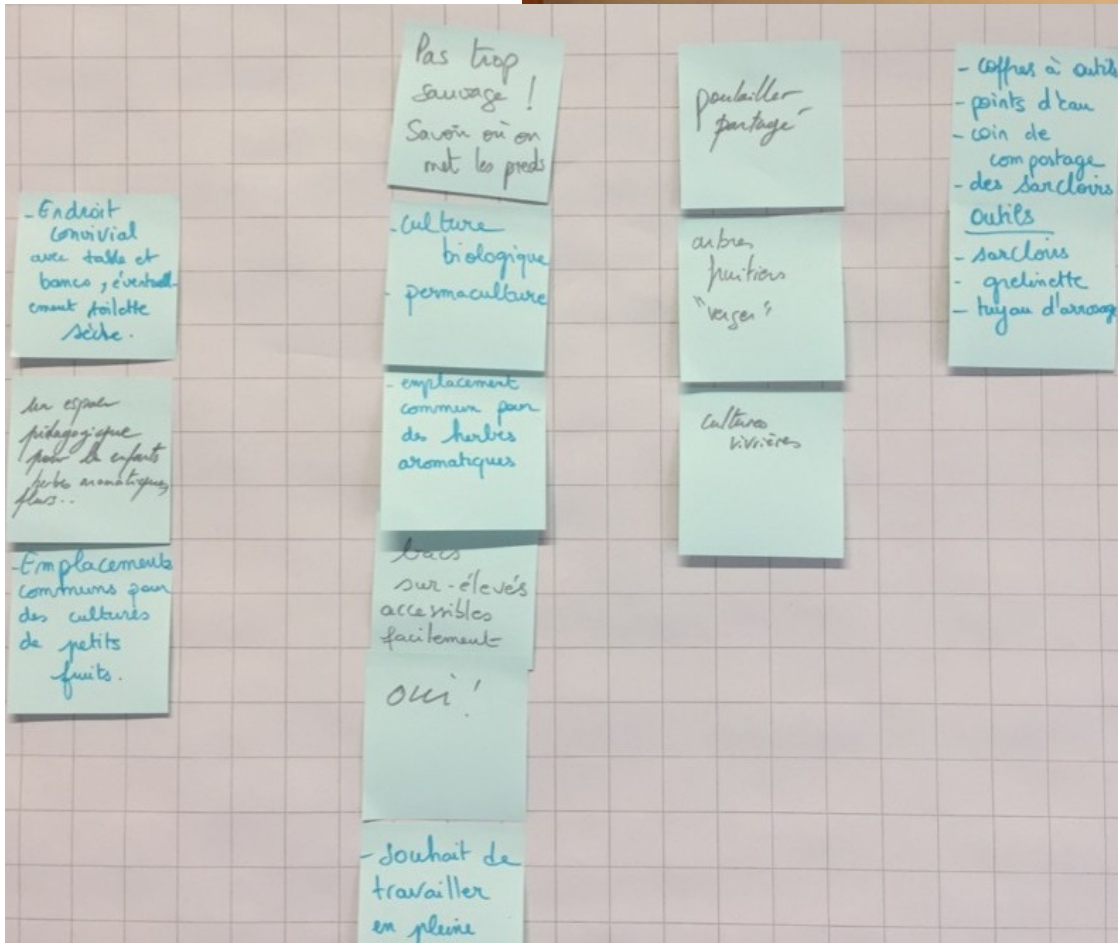 - Endroit
convivial
avec table et
bancs, éventuell-
ement toilette
sèche.
Un espace
pédagogique
pour les enfants
herbes aromatiques,
fleurs..
- Emplacements
communs pour
des cultures
de petits
fruits.
Pas trop
sauvage !
Savoir où on
met les pieds
- culture
biologique
- permaculture
- emplacement
commun pour
des herbes
aromatiques
bacs
sur-élevés
accessibles
facilement
oui !
- souhait de
travailler
en pleine
poulailler
partagé
arbres
fruitiers
"verger"
cultures
vivrières
- coffres à outils
- points d'eau
- coin de
compostage
- des sarcloirs
outils
- sarcloirs
- grelinette
- tuyau d'arrosage